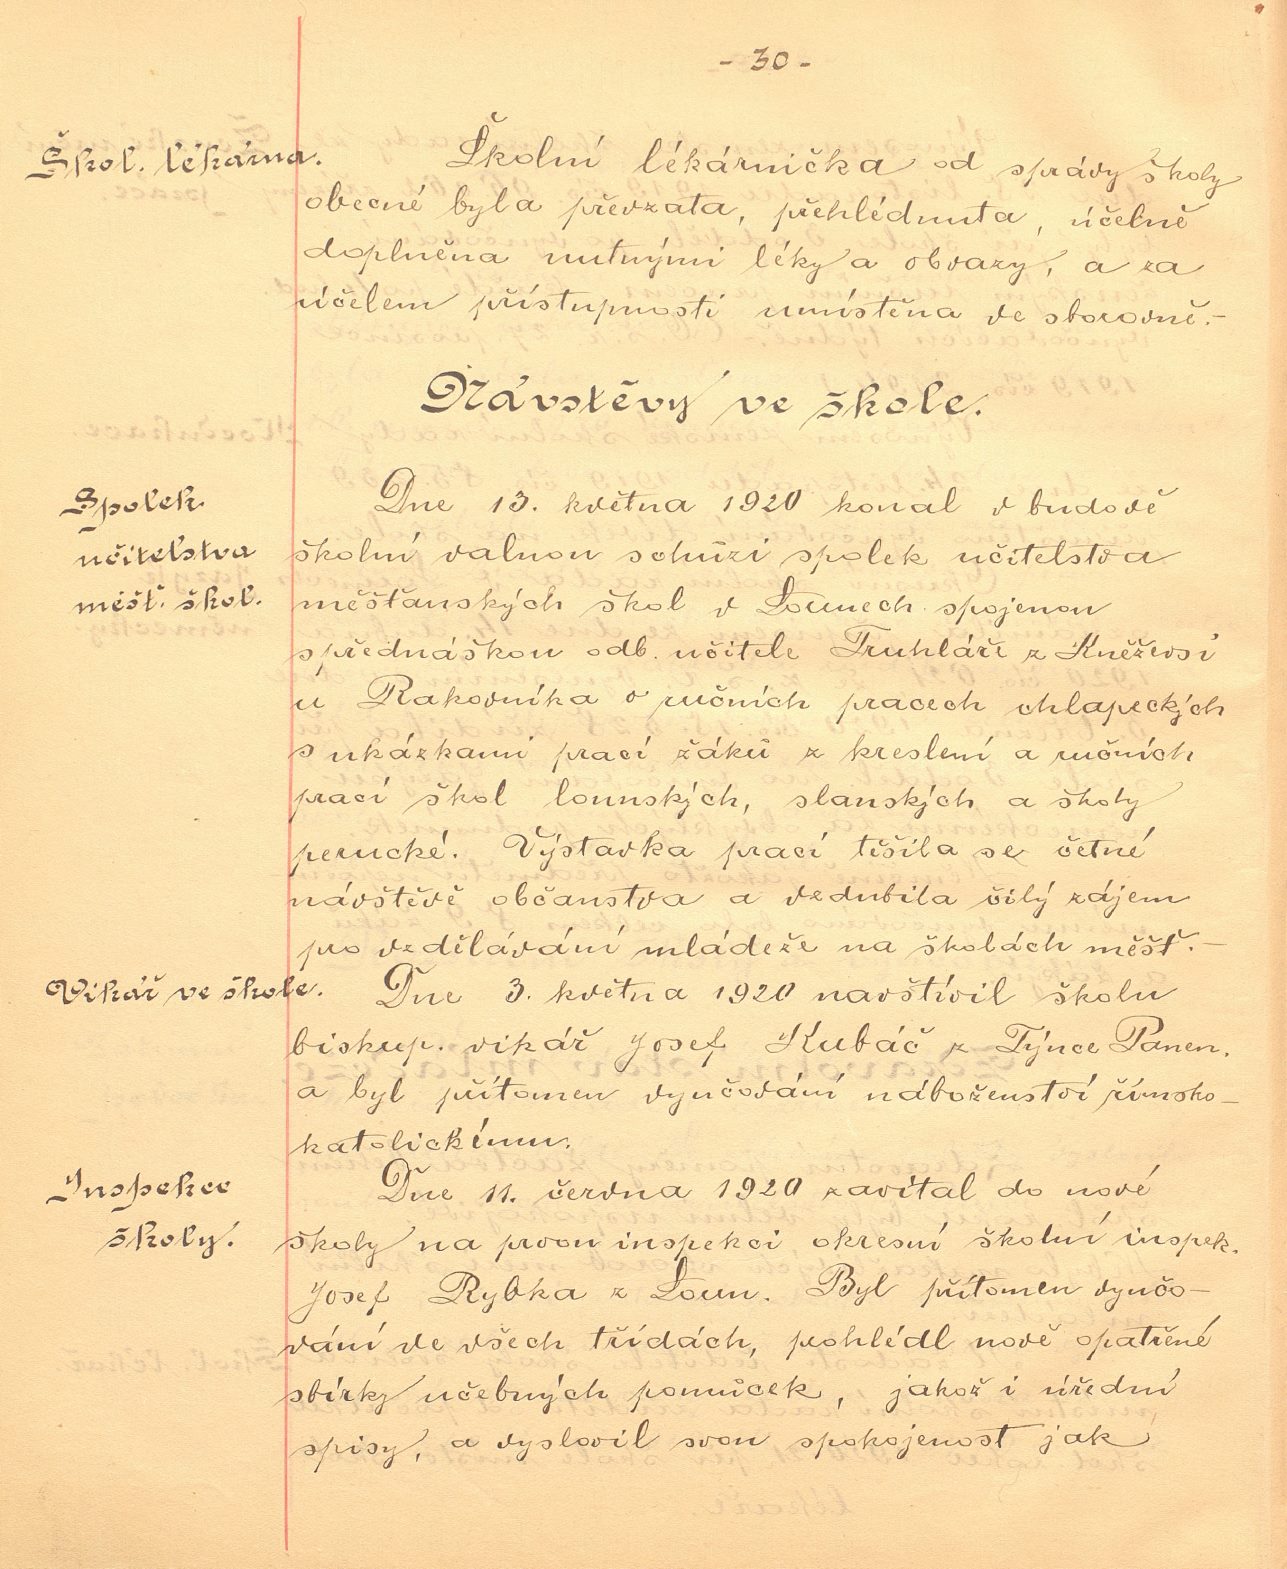 - 30 -
Škol. lékárna.
Školní lékárnička od správy školy
obecné byla převzata, přehlédnuta, účelně
doplněna nutnými léky a obvazy, a za
účelem přístupnosti umístěna ve sborovně.-
Návštěvy ve škole.
Spolek
učitelstva
měšť. škol.
Dne 13. května 1920 konal v budově
školní valnou schůzi spolek učitelstva
měšťanských škol v Lounech spojenou
s přednáškou odb. učitele Truhláře z Kněževsi
u Rakovníka o ručních pracech chlapeckých
s ukázkami prací žáků z kreslení a ručních
prací škol lounských, slanských a školy
perucké. Výstavka prací těšila se četné
návštěvě občanstva a vzdubila čilý zájem
pro vzdělávání mládeže na školách měšť.-
Vikář ve škole.
Dne 3. května 1920 navštívil školu
biskup. vikář Josef Kubáč z Týnce Panen.
a byl přítomen vyučování náboženství římsko-
katolickému.
Inspekce
školy.
Dne 11. června 1920 zavítal do nové
školy na prvou inspekci okresní školní inspek.
Josef Rybka z Loun. Byl přítomen vyučo-
vání ve všech třídách, prohlédl nově opatřené
sbírky učebných pomůcek, jakož i úřední
spisy, a vyslovil svou spokojenost jak